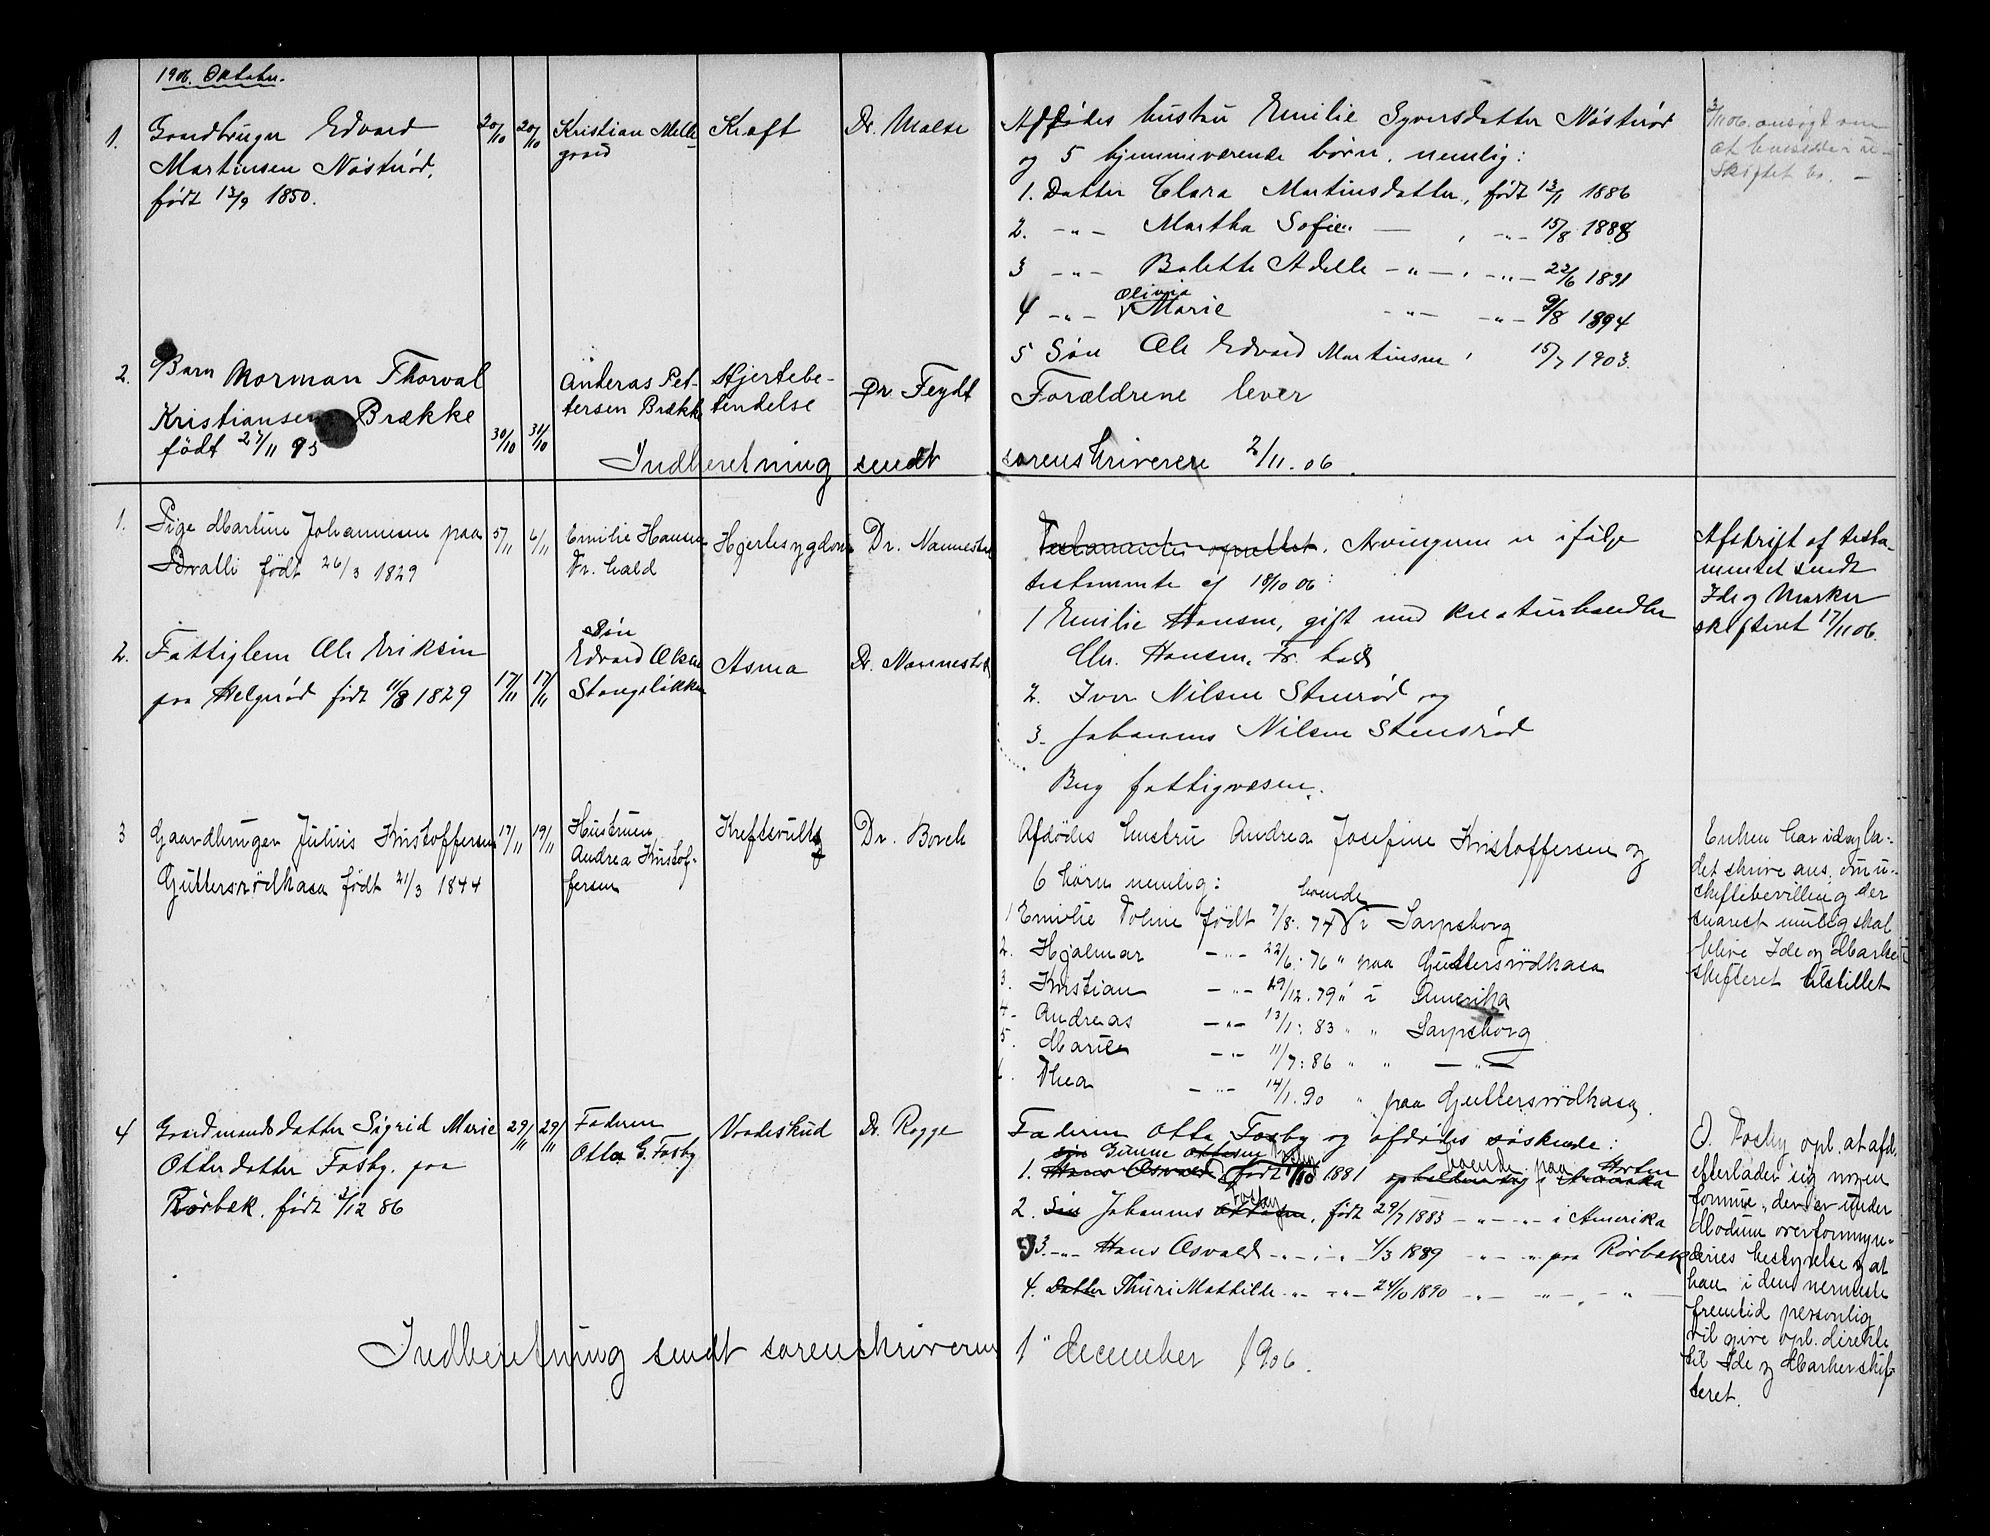 1906. Oktober.
1. Gaardbruger Edvard
Martinsen Nösterød,
født 12/9 1850.
20/10 20/10
Kristian Melle-
gaard
Kræft
Dr. Malte
Afdødes hustru Emilie Syversdatter Nösterød
og 5 hjemmeværende børn, nemlig:
1. Datter Clara Martinsdatter, født 13/1 1886
2. -"- Martha Sofie — , -"- 15/8 1888
3 -"- Bolette Adelle -"- , -"- 22/6 1891
Olivia
4 -"- Marie -"- -"- 9/8 1894
5 Søn Ole Edvard Martinsen, 15/7 1903.
3/11 06. ansøgt om
at hensidde i u-
skiftet bo. —
2. Barn Norman Thorval
Kristiansen Brække
født 27/11 95
30/10 31/10
Anderas Pet-
tersen Brække
Hjertebe-
tendelse
Dr. Feydt
Forældrene lever
Indberetning sendt sorenskriveren 2/11. 06.
1. Pige Martine Johannesen paa
født 26/3 1829
5/11 6/11
Emilie Hansen
Fr. hald
Hjertesygdom
Dr. Nannestad
Testamente oprettet. Arvingerne er ifølge
testamente af 18/10 06:
1 Emilie Hansen, gift med kreaturhandler
Chr. Hansen, Fr. hald
2. Iver Nilsen Stensrød og
3. Johannes Nilsen Stensrød
Afskrift af testa-
mentet sendt
Ide og Marker
skifteret 17/11 06.
2. Fattiglem Ole Eriksen
paa Helgerød født 11/8 1829
17/11 17/11
Søn
Edvard Olsen
Stangeløkken
Asma
Dr. Nannestad
Berg fattigvæsen.
3 Gaardbruger Julius Kristoffersen
Guttersrödkasa født 21/3 1844
17/11 19/11
Hustruen
Andrea Kristof-
fersen
Kreftsvulst
Dr. Borch
Afdødes hustru Andrea Josefine Kristoffersen og
6 børn nemlig:
boende
1 Emilie Toline født 7/8. 74 i Sarpsborg
2. Hjalmar -"- 22/6. 76 " paa Guttersrödkasa
3. Kristian -"- 29/12. 79 " i Amerika
4. Andreas -"- 13/1. 83 " " Sarpsborg
5. Marie -"- 11/7. 86 " " -"-
6. Thea -"- 14/1. 90 " paa Guttersrödkasa.
Enken har idag la-
det skrive ans. om u-
skiftebevilling der
snarest mulig skal
blive Ide og Marker
skifteret tilstillet
4 Gaardmandsdatter Sigrid Marie
Ottersdatter Fosby. paa
Rørbæk. født 2/12 86
29/11 29/11
Faderen
Otto G. Fosby
Vaadeskud
Dr. Rogge
Faderen Otto Fosby og afdødes søskende:
søn Gunne Ottesen boende paa Horten
1. Hans Osvald født /10 1881 opholdende sig i Amerika
Fosby
2. Søn Johannes Ottesen, født 29/7 1883 -"- -"- i Amerika
3. -"- Hans Osvald -"- -"- 1/3 1889 -"- " paa Rørbæk
4. Datter Thuri Mathilde -"- -"- 24/10 1890 -"- -"- -"-
O. Fosby opl. at afd.
efterlader sig nogen
formue, der er under
Modum overformyn-
deries bestyrelse og at
han i den nermeste
fremtid personlig
vil give opl. direkte
til Ide og Marker skif-
teret.
Indberetning sendt sorenskriveren 1" december 1906.